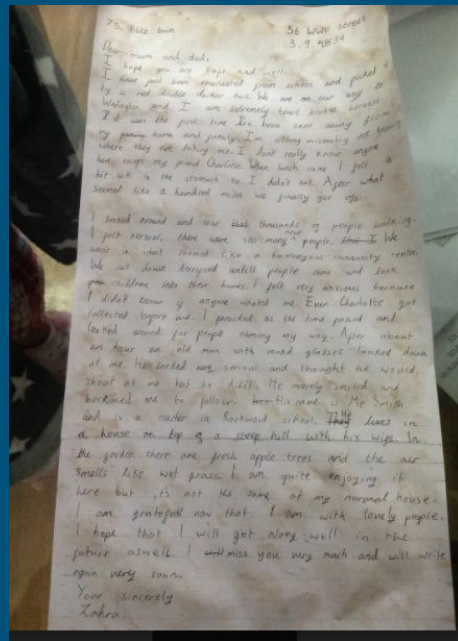 56 street
3.9.39
Dear mum and dad,
I hope you are safe and well.
I have just been evacuated from school and packed
by a red double decker bus. We are on our way to
and I am extremely heart broken because
It was the first time I've been sent away from
my home and family. I'm sitting not knowing
where they are taking me. I don't really know anyone
here except my friend Charlotte. When lunch came I felt a
bit sick in the stomach so I didn't eat. After what
seemed like a hundred miles we finally got off.
I looked around and saw that thousands of people walking.
I felt nervous, there were soo many people. We
went in what seemed like a humungous community centre.
We sat down terryfied untill people came and took
children into their homes. I felt very anxious because
I didn't know if anyone wanted me. Even Charlotte got
collected before me. I panicked as the time passed and
looked around for people coming my way. After about
an hour an old man with round glasses looked down
at me. He looked very serious and thought he would
shout at me but he didn't. He merely smiled and
beckoned me to follow. His name is Mr Smith
and is a teacher in Rookward school. They He lives in
a house on top of a steep hill with his wife. In
the garden there are fresh apple trees and the air
smells like wet grass. I am quite enjoying it
here but its not the same at my normal house.
I am gratefull now that I am with lovely people.
I hope that I will get along well in the
future aswell. I will miss you very much and will write
again very soon.
Your sincerely
Zahra